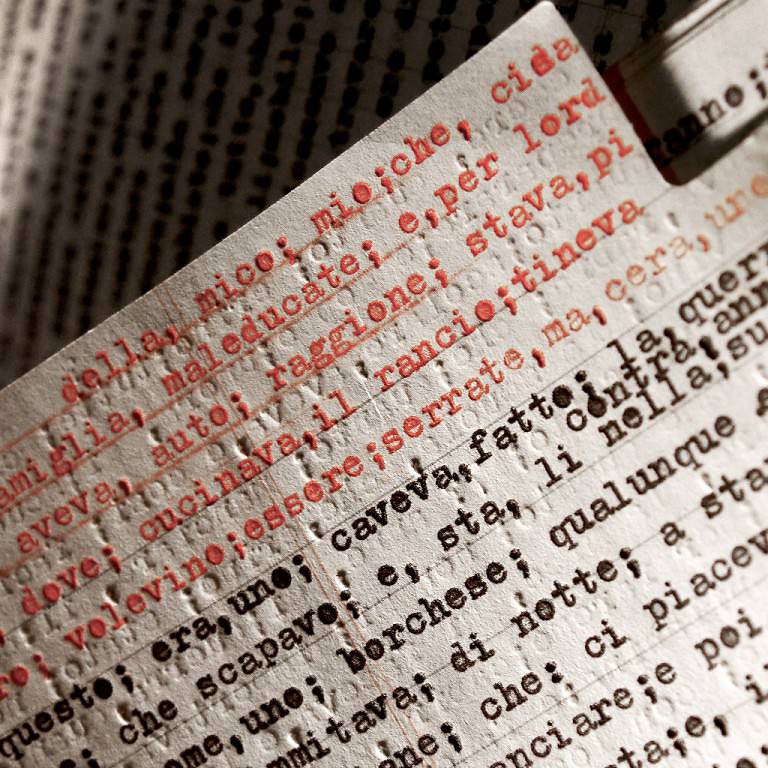 della, mico; mio;che, cida
amiglia, maleducate; e,per lord
aveva, auto; raggione; stava,pi
, dove; cucinava,il rancio;tineva
ro; volevino;essere;serrate,ma,cera,ure
questo; era,uno; caveva,fatto; la,querr
; che scapavo; e, sta, li nella;su
contra,ann
ome,uno; borchese; qualunque
mmitava; di notte; a sta
ane; che; ci piacev
nciare;e poi
ta;e, i
anno;